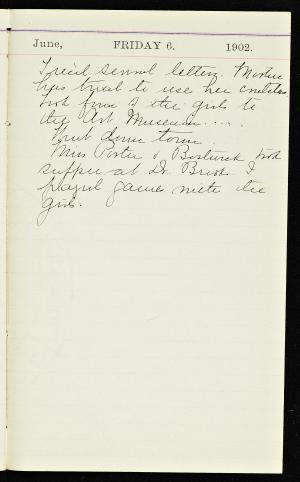 June, FRIDAY 6. 1902.
I rec'd several letters. Mother
has tried to use her crutches
Took four of the girls to
the Art Museum....
Went down town.
Miss Porter & Bostwick took
supper at Dr. I
played games with the
girls.